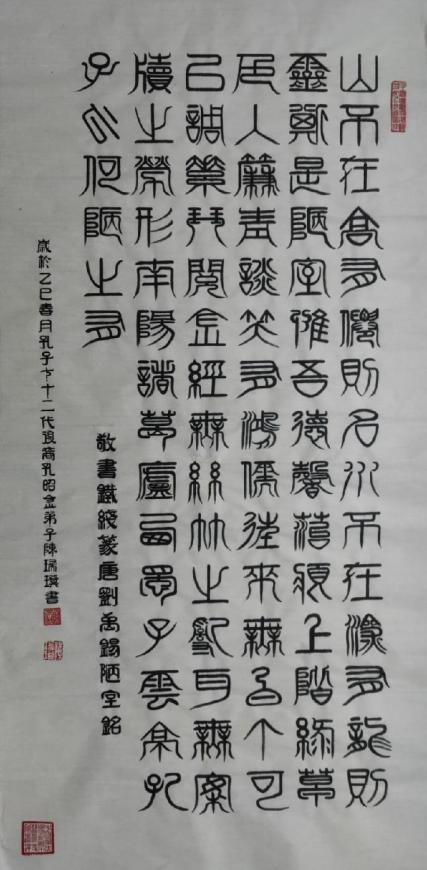 山不在高有僊則名水不在深有龍則
靈斯是陋室惟吾德馨苔痕上階綠草
色入簾青談笑有鴻儒往來無白丁可
以調素琴閱金經無絲竹之亂耳無案
牘之勞形南陽諸葛廬西蜀子雲亭孔
子云何陋之有
敬書鐵線篆唐劉禹錫陋室銘
歲於乙巳春月孔子七十二代孔昭金弟子陳瑞璜書